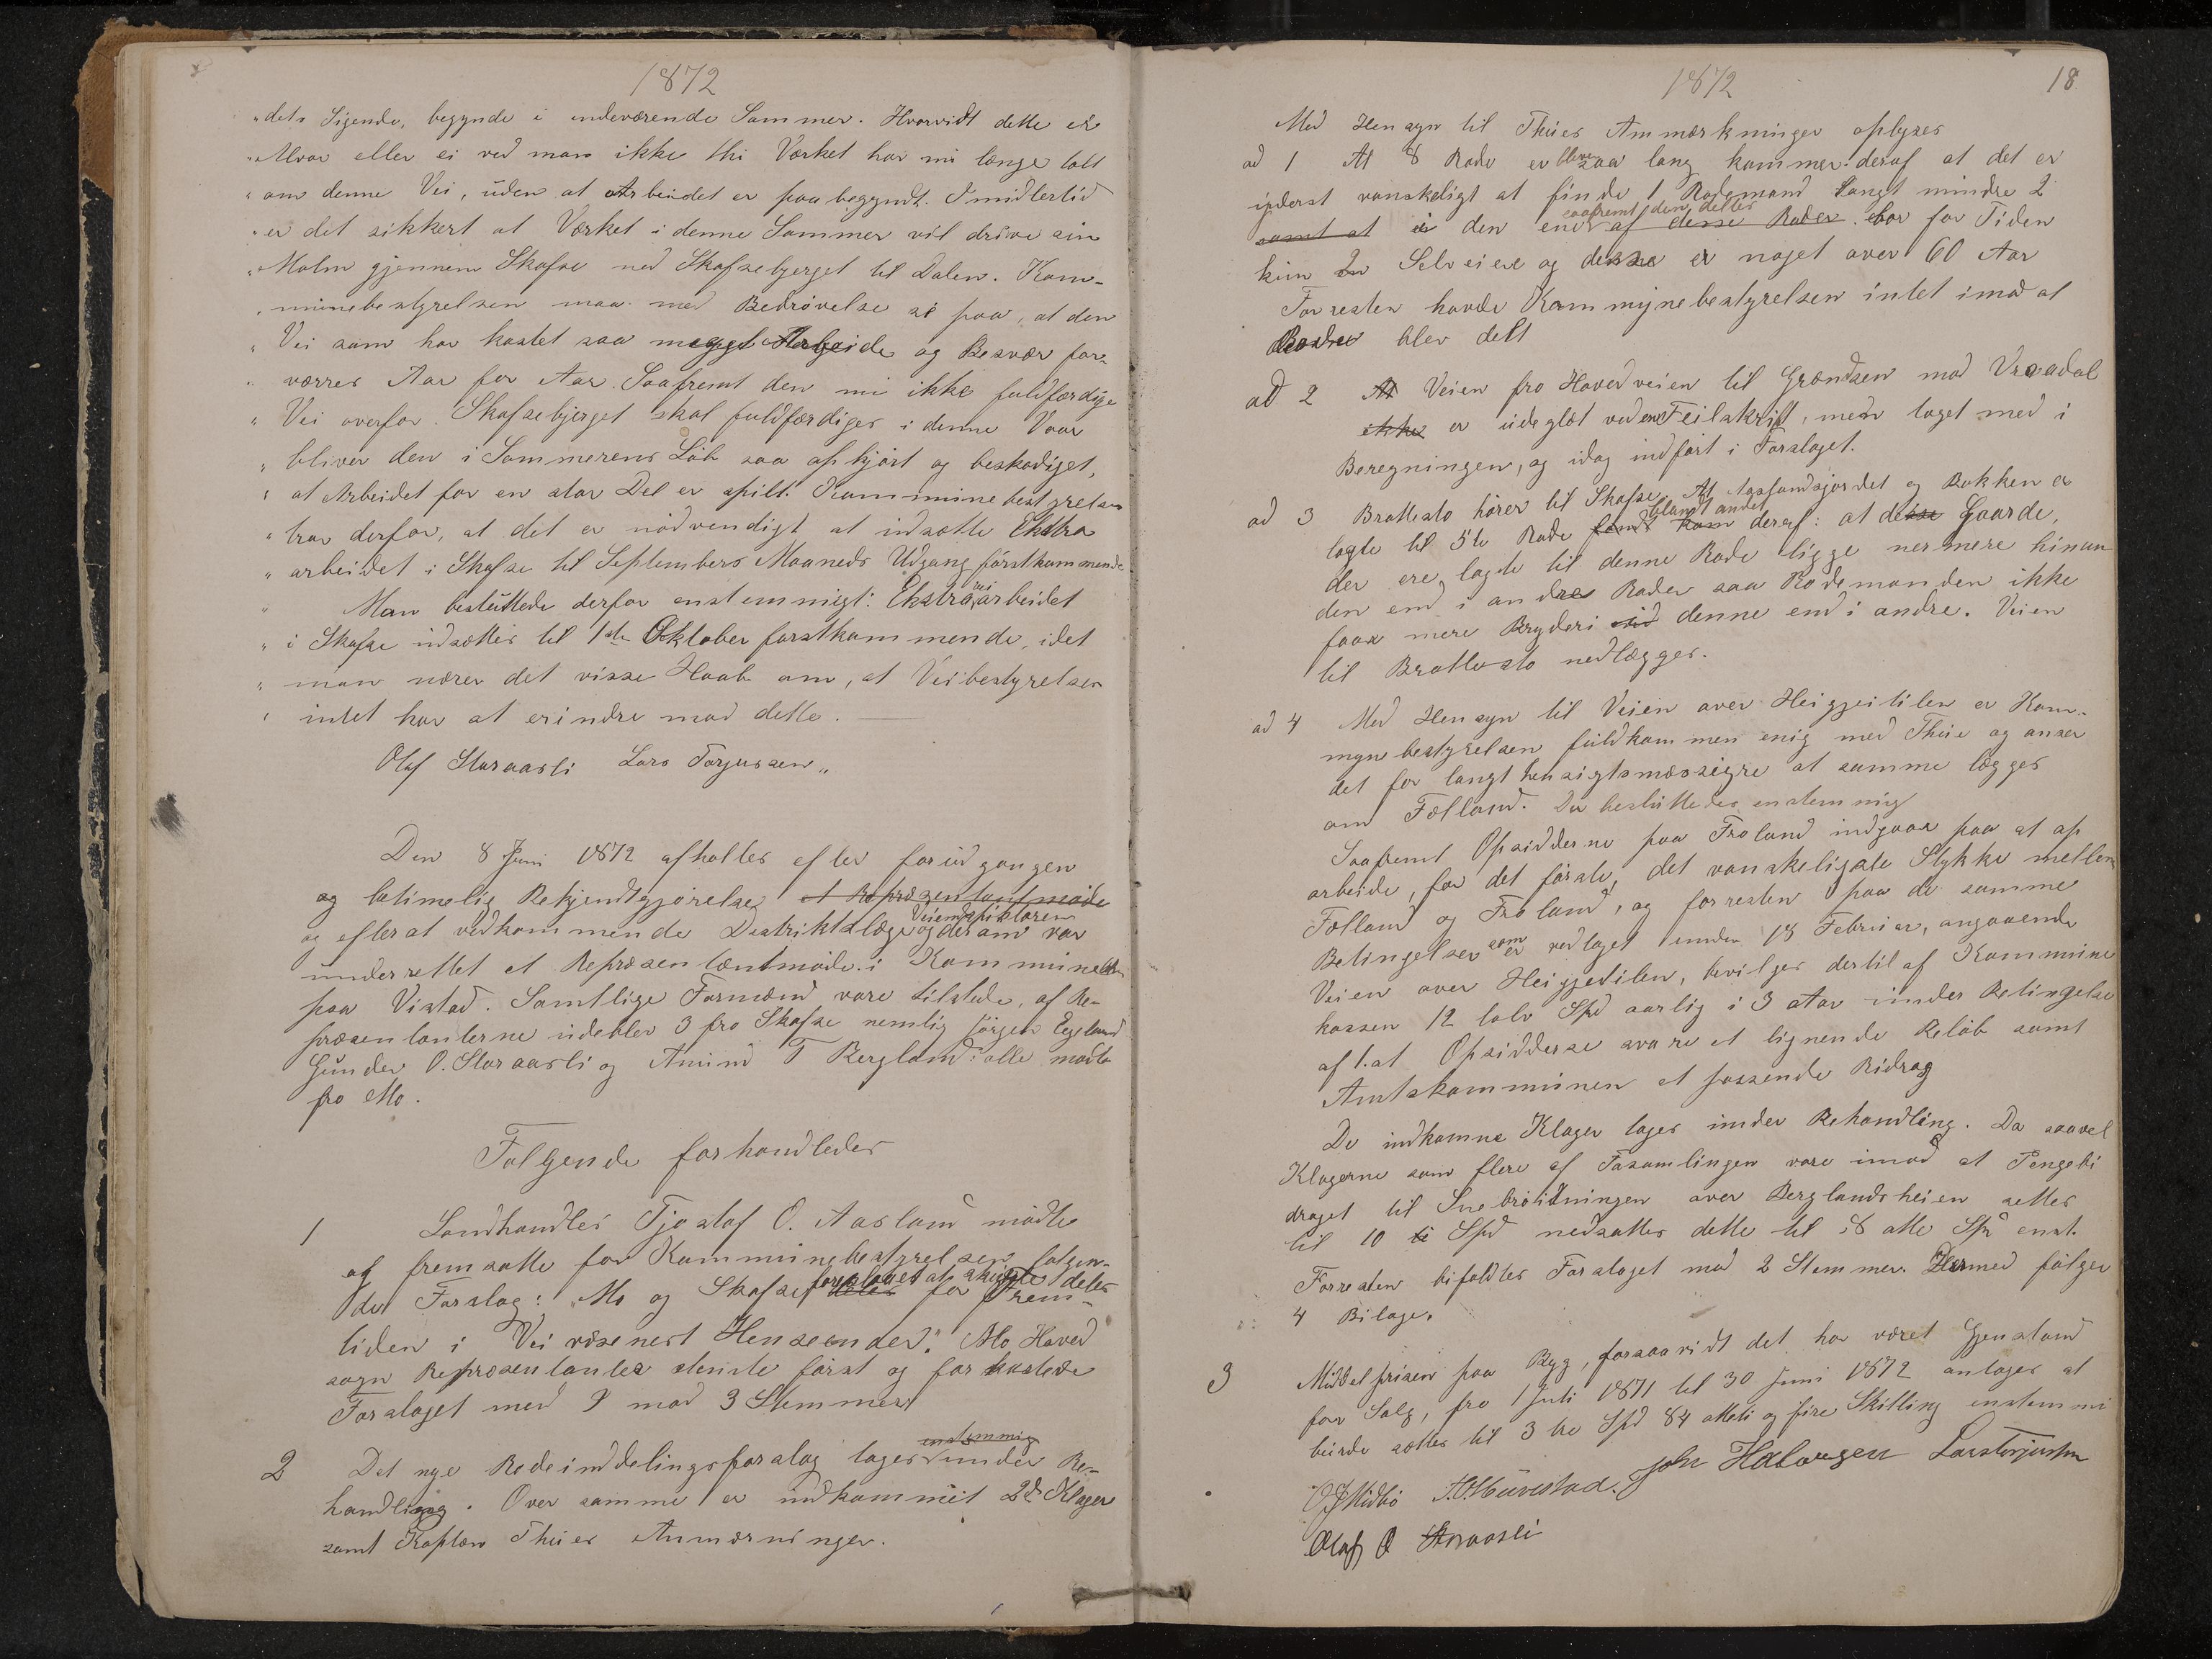 1872
"dets Sigende, begynde i indeværende Sommer. Hvorvidt dette er
"Alvor eller ei ved man ikke thi Værket har nu længe talt
"om denne Vei, uden at Arbeidet er paabegyndt. Imidlertid
"er det sikkert at Værket i denne Sommer vil drive sin
"Malm gjennem Skafse ned Skafsebjerget til Dalen. Kom-
"munebestyrelsen maa med Bedrøvelse se paa, at den
"Vei som har kostet saa meget Arbeide og Besvær for-
"værres Aar for Aar. Saafremt den nu ikke fuldfærdige
"Vei overfor Skafsebjerget skal fuldfærdiges i denne Vaar
"bliver den i Sommerens Løb saa opkjørt og beskadiget,
"at Arbeidet for en stor Del er spilt. Kommunebestyrelsen
"tror derfor, at det er nødvendigt at udsætte Ekstra
"arbeidet i Skafse til Septembers Maaneds Udgang førstkommende.
" Man besluttede derfor enstemmigt: Ekstraarbeidet
"i Skafse udsættes til 1ste Oktober førstkommende, idet
"man nærer det visse Haab om, at Veibestyrelsen
"intet har at erindre mod dette.
Olaf Storaasli Lars Torjussen"
Den 8 Juni 1872 afholtes efter forudgangen
og betimelig Bekjendtgjørelse et Repræsentantmøde
og efterat vedkommende Distriktslæge og Veiinspektøren derom var
underrettet et Repræsentantmøde i Kommunelok
paa Vistad. Samtlige Formænd vare tilstede, af Re-
præsentanterne udeblev 3 fra Skafse nemlig Jørgen Egeland
Gunder O. Storaasli og Amund T Bergland: alle mødte
fra Mo.
Følgende forhandledes
1 Landhandler Tjostof O. Aasland mødte
og fremsatte for Kommunebestyrelsen følgen-
de Forslag: Mo og Skafse foreslaaes at skulle deles deles for Frem-
tiden i Veivæsenets Henseender. Mo Hoved
sogn Repræsentanter stemte først og forkastede
Forslaget med 9 mod 3 Stemmer
2 Det nye Rodeinddelingsforslag toges enstemmig under Be-
handling. Over samme er indkommet 2de Klager
samt Kaptein Thues Anmærninger.
1872 18
Med Hensyn til Thues Anmærkninger oplyses
ad 1 At 8 Rode er bleven saa lang kommer deraf at det er
yderst vanskeligt at finde 1 Rodemand langt mindre 2
samt at i den ene saafremt den deltes af disse Roder bor for Tiden
kun En Selveier og desse er noget over 60 Aar
Forresten havde Kommynebestyrelsen intet imod at
Roden blev delt
ad 2 At Veien fra Hovedveien til Grændsen mod Vraadal
ikke er udeglæt ved en Feilskrift, men taget med i
Beregningen, og idag indført i Forslaget.
ad 3 Brattesto hører til Skafse. At Aaslandsjordet og Bakken er
lagte til 5te Rode kom blandt andet deraf: at desse Gaarde,
der ere lagte til denne Rode ligge nermere hinan
den end i andre Roder saa Rodemanden ikke
faar mere Bryderi ved denne end i andre. Veien
til Brattesto nedlægges.
ad 4 Med Hensyn til Veien over Heigjeitilen er Kom-
mynebestyrelsen fuldkommen enig med Thue og anser
det for langt hensigtsmæssigre at samme lægges
om Fælland. Du besluttedes enstemmig
Saafremt Opsidderne paa Froland indgaar paa at op
arbeide, for det første, det vanskeligste Stykke mellem
Fælland og Froland, og forresten paa de samme
Betingelser som er vedtaget under 13 Februar, angaaende
Veien over Heigjeitilen, bevilges dertil af Kommune
kassen 12 tolv Spd aarlig i 3 Aar under Betingelse
af 1. at Opsidderne svare et lignende Beløb samt
Amtskommunen et passende Bidrag
De indkomne Klager toges under Behandling. Da saavel
Klagerne som flere af Fosamlingen vare imod at Pengebi
draget til Snebrøitningen over Berglandsheien settes
til 10 ti Spd nedsattes dette til 8 otte Spd enst.
Forresten bifaldtes Forslaget mod 2 Stemmer. Hermed følger
4 Bilage.
3 Middelprisen paa Byg, forsaavidt det har været Gjenstand
for Salg, fra 1 Juli 1871 til 30 Juni 1872 antages at
burde sættes til 3 tre Spd 84 otteti og fire Skilling enstemmi
O J Midbø John Halvorsen Lars Torjussen
Olaf O Storaasli